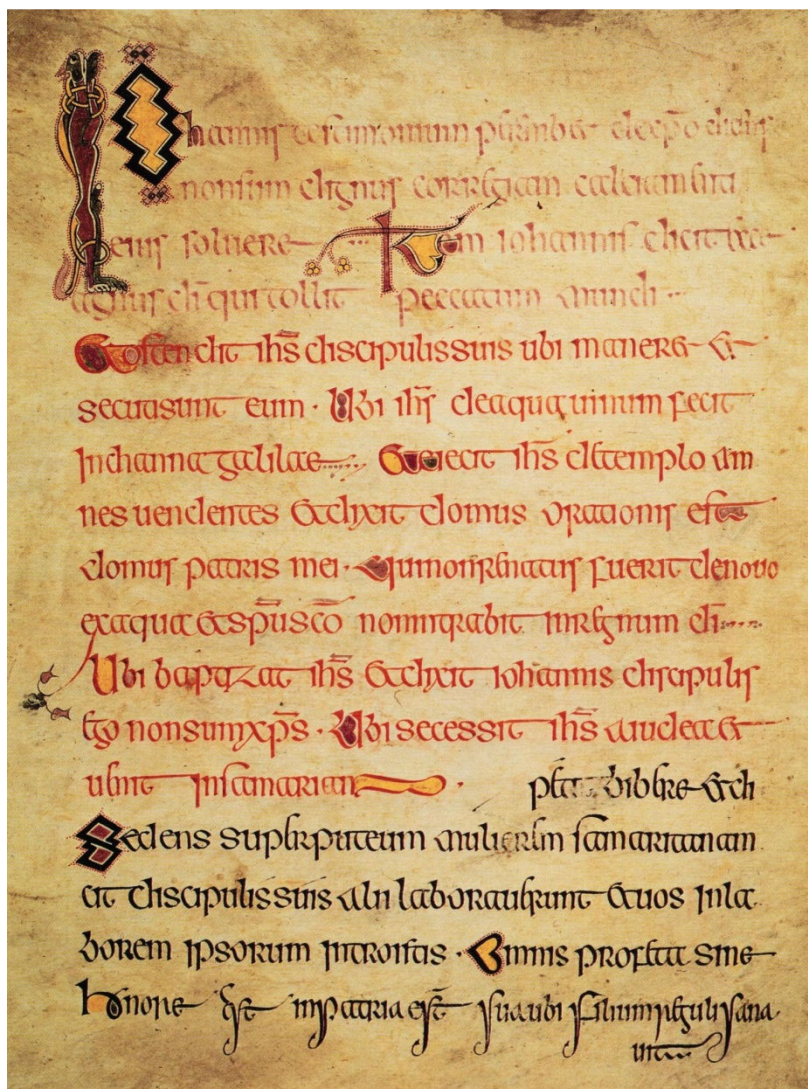 Iohannis testimonium perhibet de xp̄o dicens
non sum dignus corregiam calciamenta
eius soluere Item iohannis dicit ecce
agnus dī qui tollit peccatum mundi
Et ostendit ih̄s discipulis suis ubi maneret &
secuti sunt eum · Ubi ih̄s de aqua uinum fecit
in channa galilae Et eiecit ih̄s de templo om
nes uendentes & dixit domus orationis est
domus patris mei · Qui non renatus fuerit denouo
ex aqua & sp̄u sc̄o non intrabit in regnum dī
Ubi baptizat ih̄s & dixit iohannis discipulis
ego non sum xp̄s · Ubi secessit ih̄s a iudea &
uenit in samariam · petit bibere & di
Sedens super puteum mulierem samaritanam
cit discipulis suis alii laborauerunt & uos in la
borem ipsorum introistis · Omnis profeta sine
honore est in patria est sua ubi filium reguli sana
uit